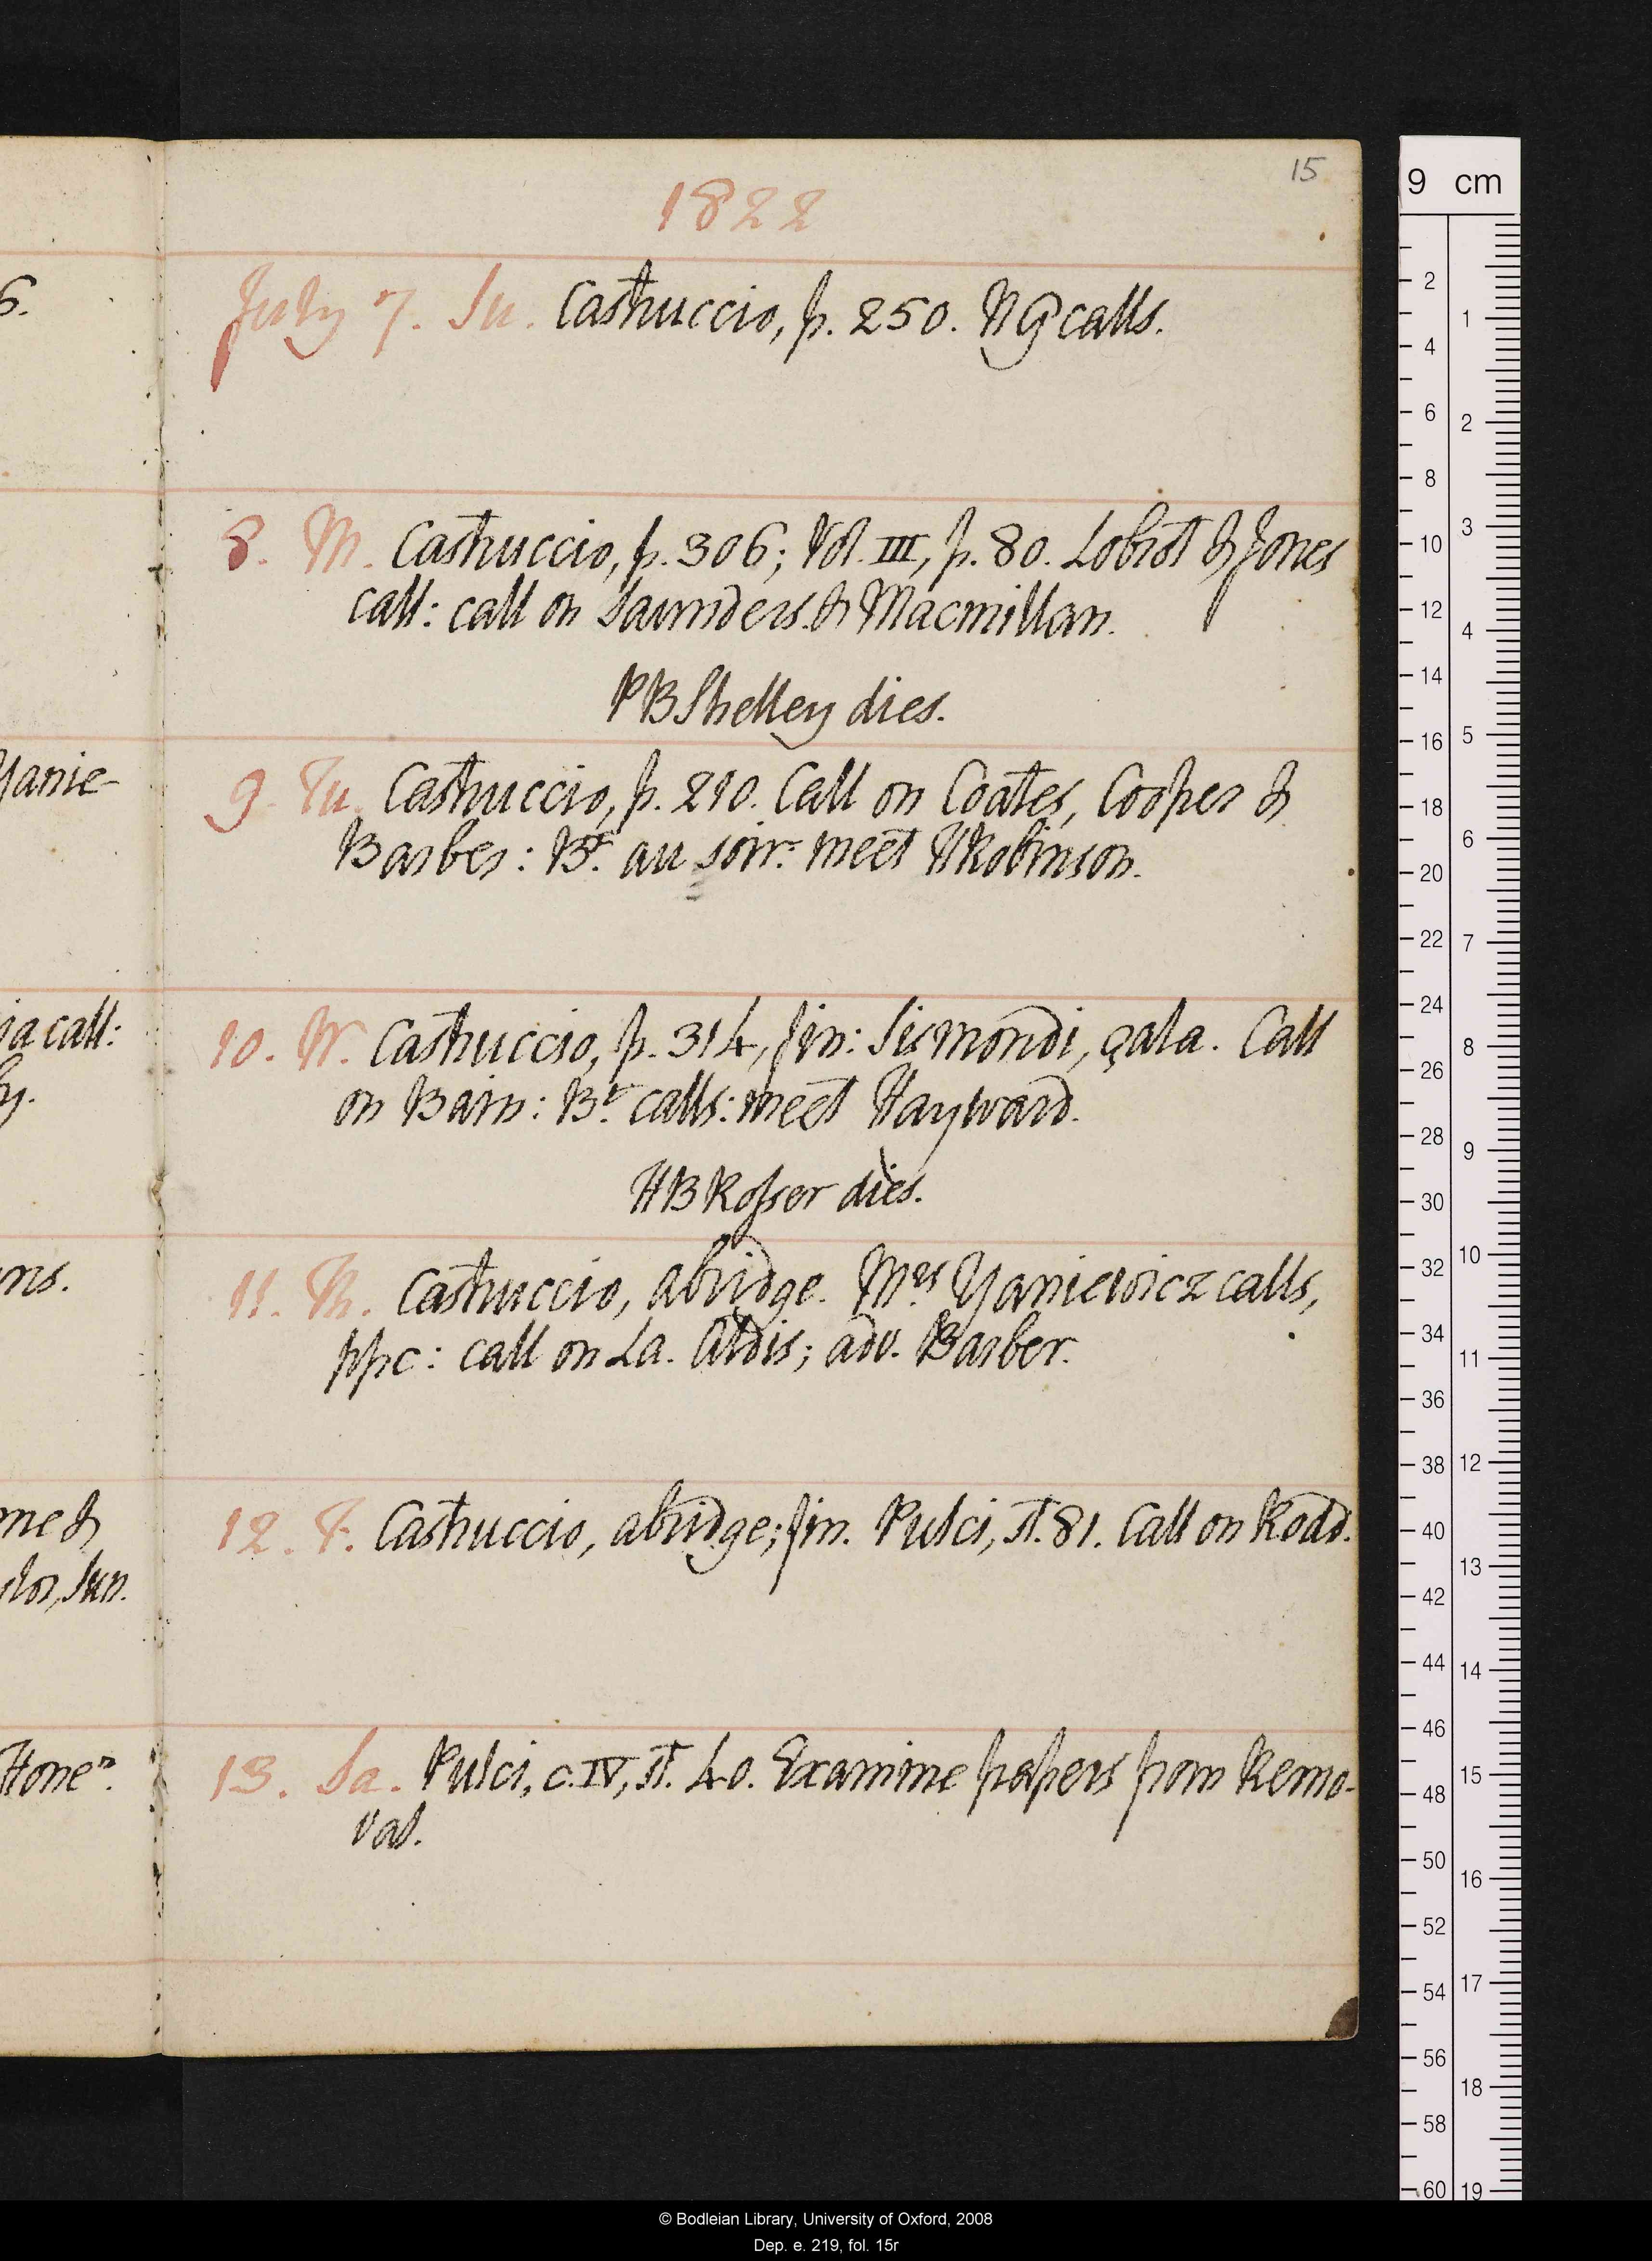 15
1822
July 7. Su. Castruccio, p. 250. N G calls.
8. M. Castruccio, p. 306; Vol. III, p. 80. Lobrot & Jones
call: call on Saunders & Macmillan.
P B Shelley dies.
9. Tu. Castruccio, p. 210. Call on Coates, Cooper &
Barber: Bt. au soir: meet H Robinson.
10. W. Castruccio, p. 314, fin: Sismondi, çala. Call
on Bain: Bt. calls: meet Hayward.
H B Rosser dies.
11. Th. Castruccio, abridge. Mrs Yaniewicz calls,
ppc: call on La. Aldis; adv. Barber.
12. F. Castruccio, abridge; fin. Pulci, st. 81. Call on Rodd.
13. Sa. Pulci, c. IV, st. 40. Examine papers from Remo-
val.
6.
Yanie-
ia call:
y.
ns.
me &
lor, Jun.
Hone.
9 cm
2 4 6 8 10 12 14 16 18 20 22 24 26 28 30 32 34 36 38 40 42 44 46 48 50 52 54 56 58 60
1 2 3 4 5 6 7 8 9 10 11 12 13 14 15 16 17 18 19
© Bodleian Library, University of Oxford, 2008
Dep. e. 219, fol. 15r